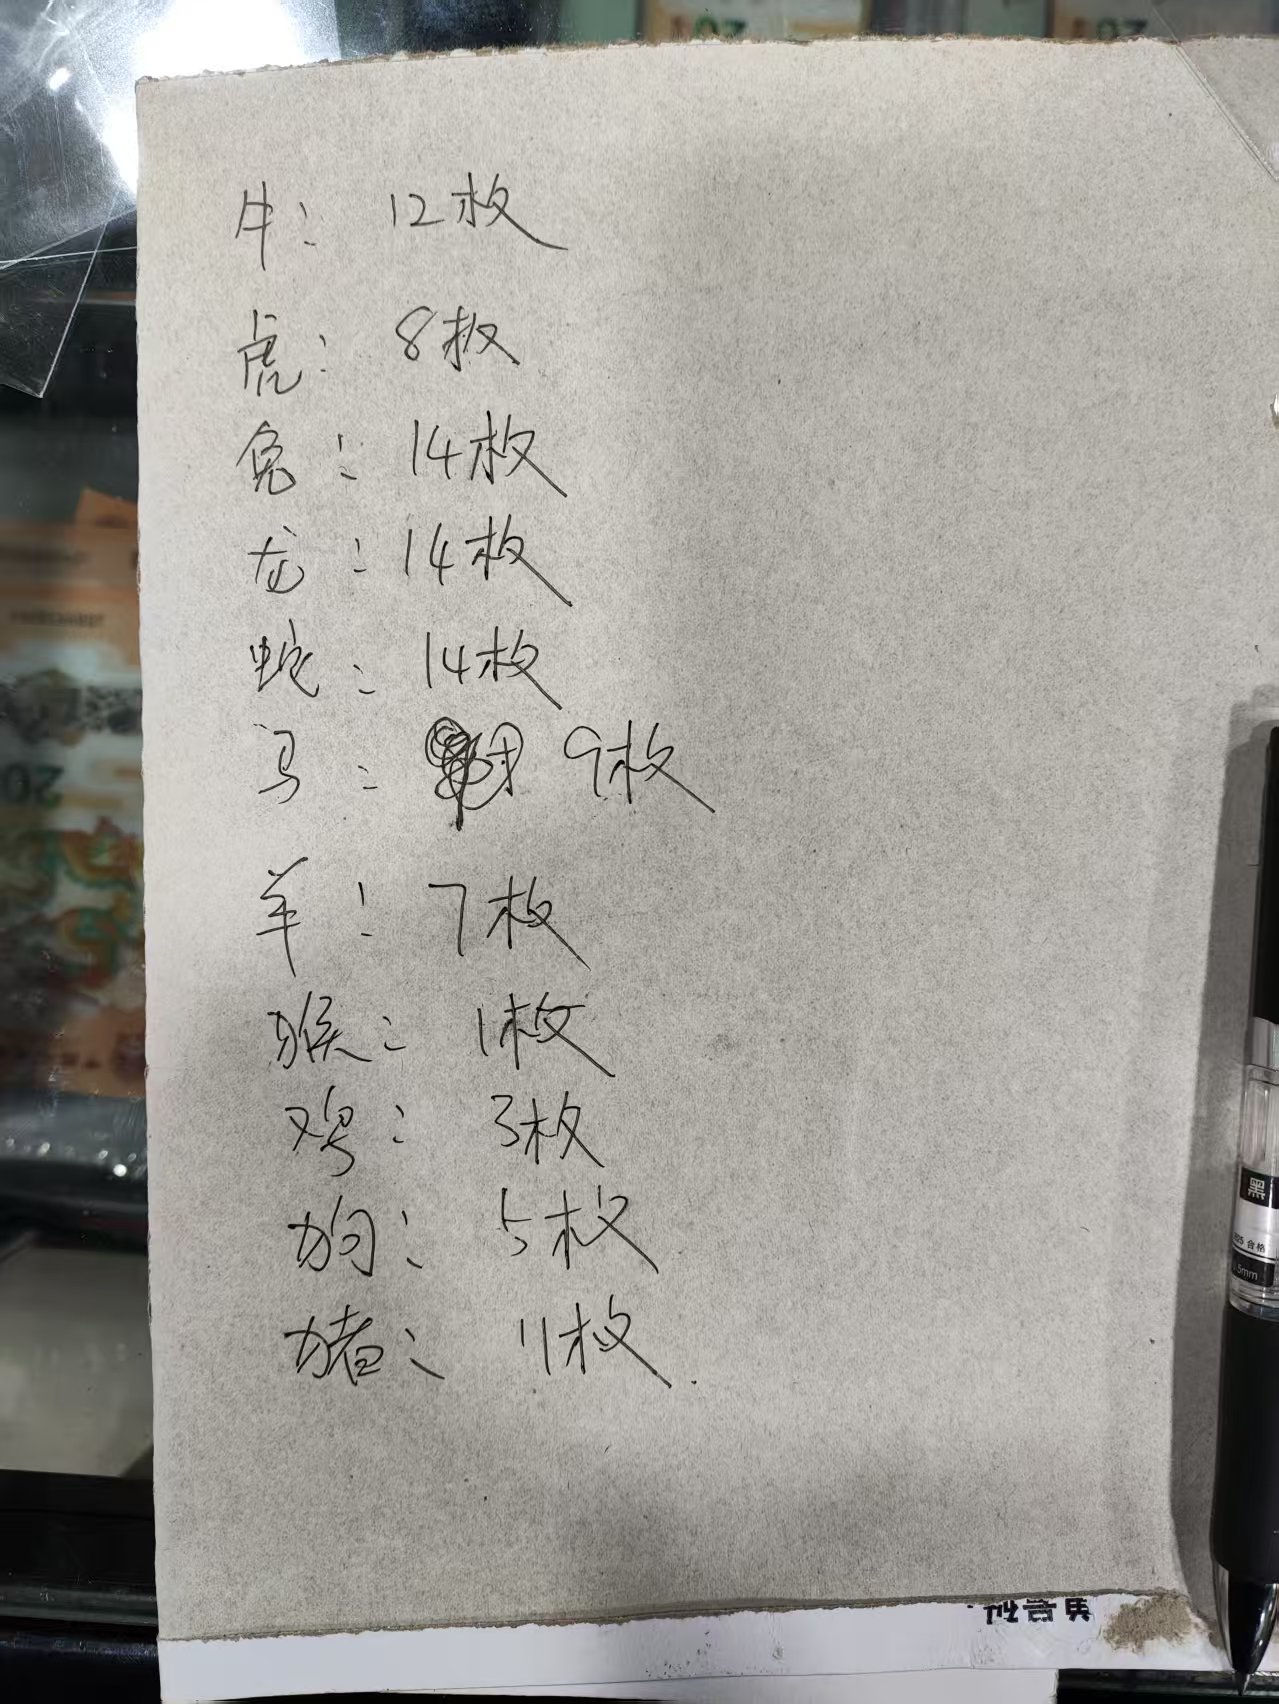 牛：12枚
虎：8枚
兔：14枚
龙：14枚
蛇：14枚
马：9枚
羊：7枚
猴：1枚
鸡：3枚
狗：5枚
猪：11枚.
黑
合格
.5mm